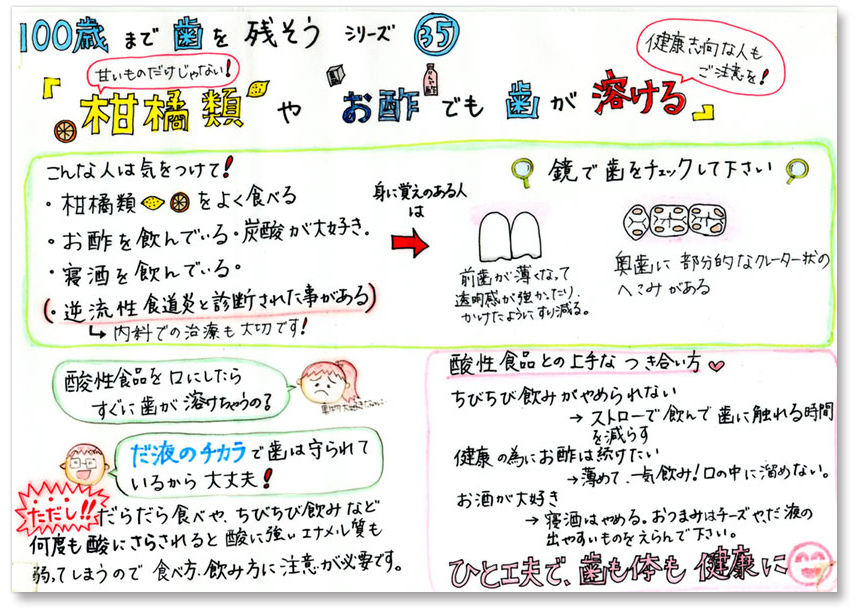 100歳まで歯を残そう シリーズ 35
甘いものだけじゃない!
健康志向な人も
ご注意を!
『柑橘類やお酢でも歯が溶ける』
お酢
こんな人は気をつけて!
・柑橘類をよく食べる
・お酢を飲んでいる・炭酸が大好き。
・寝酒を飲んでいる。
(・逆流性食道炎と診断された事がある)
↳内科での治療も大切です!
身に覚えのある人
は
鏡で歯をチェックして下さい
前歯が薄くなって
透明感が強かったり、
かけたようにすり減る。
奥歯に部分的なクレーター状の
へこみがある
酸性食品を口にしたら
すぐに歯が溶けちゃうの?
だ液のチカラで歯は守られて
いるから大丈夫!
ただし!!
だらだら食べや、ちびちび飲みなど
何度も酸にさらされると酸に強いエナメル質も
弱ってしまうので食べ方、飲み方に注意が必要です。
酸性食品との上手なつき合い方♡
ちびちび飲みがやめられない
→ストローで飲んで歯に触れる時間
を減らす
健康の為にお酢は続けたい
→薄めて、一気飲み!口の中に溜めない。
お酒が大好き
→寝酒はやめる。おつまみはチーズや、だ液の
出やすいものをえらんで下さい。
ひと工夫で、歯も体も健康に